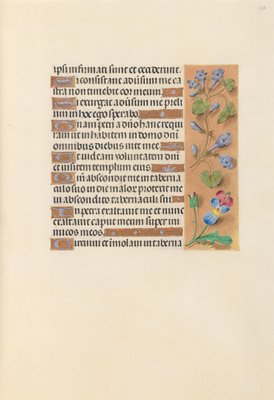 ipsi infirmati sunt et ceciderunt.
Si consistant adūsum me ca
stra non timebit cor meum.
Si exurgat adūsum me preli
um in hoc ego sperabo.
Unam petii a dño hanc requi
ram ut inhabitem in domo dnī
omnibus diebus vite mee.
Ut videam voluntatem dnī
et visitem templum eius.
Qm̄ abscondit me in taberna
culo suo in die malor̄ protexit me
in abscondito tabernaculi sui
In petra exaltavit me et nunc
exaltavit caput meum super ini
micos meos.
Circuivi et īmolavi in taberna